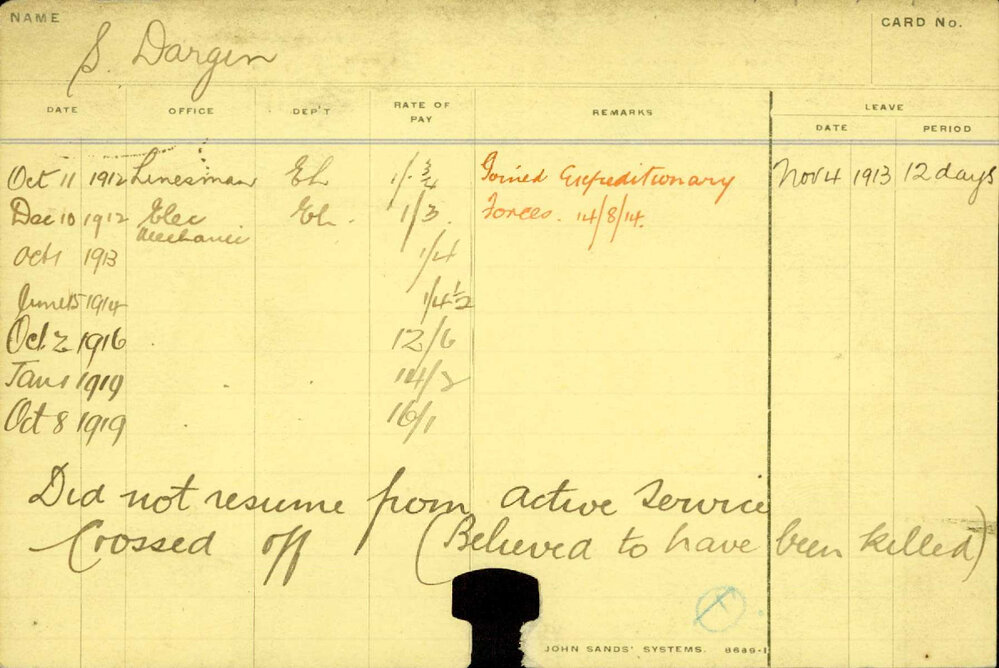 NAME
S. Dargin
CARD No.
DATE OFFICE DEP'T RATE OF PAY REMARKS LEAVE
DATE PERIOD
Oct 11 1912 Linesman El. 1/- 3/4 Joined Expeditionary Nov 4 1913 12 days
Dec 10 1912 Elec El. 1/3. Forces. 14/8/14.
Mechanic
Oct 1 1913 1/4
June 15 1914 1/4½
Oct. 2 1916 12/6
Jan 1 1919 14/3
Oct 8 1919 16/1
Did not resume from active service
Crossed off (Believed to have been killed)
JOHN SANDS' SYSTEMS. 8689-1